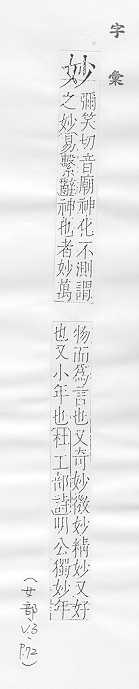 字彙
妙 彌笑切音廟神化不測謂
之妙易繫辭神也者妙萬
物而爲言也又奇妙微妙精妙又好
也又小年也杜工部詩明公獨妙年
(女部 V.3、P.72)